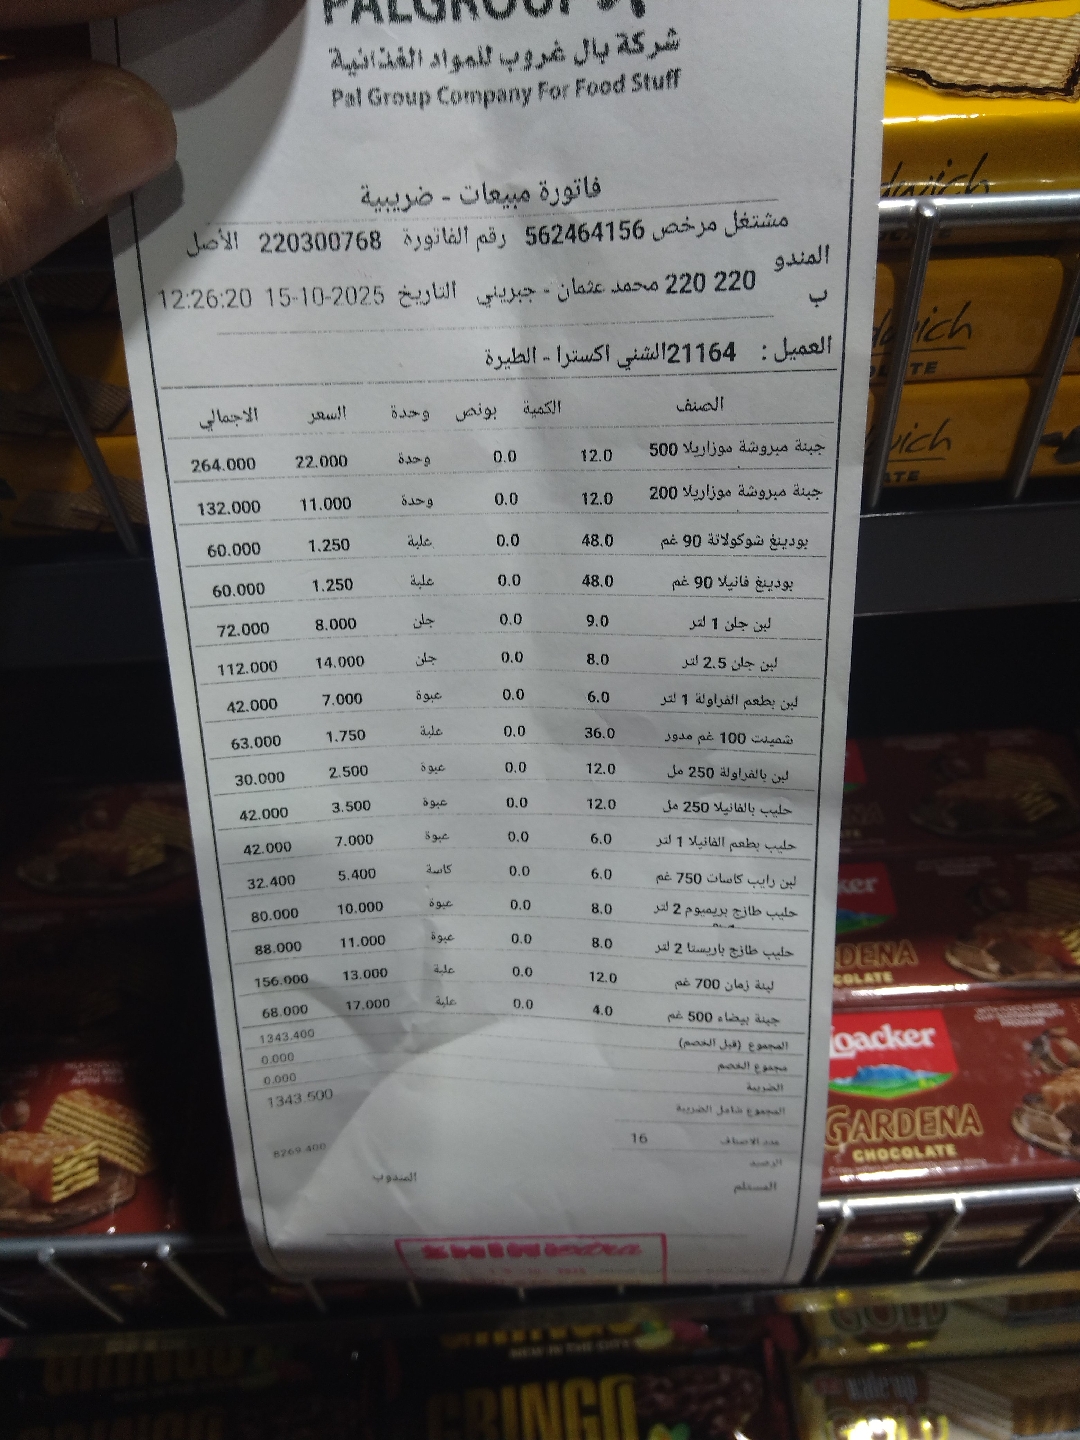 PALGROUP
شركة بال غروب للمواد الغذائية
Pal Group Company For Food Stuff
فاتورة مبيعات - ضريبية
مشتغل مرخص 562464156 رقم الفاتورة 220300768 الأصل
المندوب 220 220 محمد عثمان - جبريني التاريخ 15-10-2025 12:26:20
العميل : 21164الشني اكسترا - الطيرة
الصنف الكمية بونص وحدة السعر الاجمالي
جبنة مبروشة موزاريلا 500 12.0 0.0 وحدة 22.000 264.000
جبنة مبروشة موزاريلا 200 12.0 0.0 وحدة 11.000 132.000
بودينغ شوكولاتة 90 غم 48.0 0.0 علبة 1.250 60.000
بودينغ فانيلا 90 غم 48.0 0.0 علبة 1.250 60.000
لبن جلن 1 لتر 9.0 0.0 جلن 8.000 72.000
لبن جلن 2.5 لتر 8.0 0.0 جلن 14.000 112.000
لبن بطعم الفراولة 1 لتر 6.0 0.0 عبوة 7.000 42.000
شمينت 100 غم مدور 36.0 0.0 علبة 1.750 63.000
لبن بالفراولة 250 مل 12.0 0.0 عبوة 2.500 30.000
حليب بالفانيلا 250 مل 12.0 0.0 عبوة 3.500 42.000
حليب بطعم الفانيلا 1 لتر 6.0 0.0 عبوة 7.000 42.000
لبن رايب كاسات 750 غم 6.0 0.0 كاسة 5.400 32.400
حليب طازج بريميوم 2 لتر 8.0 0.0 عبوة 10.000 80.000
حليب طازج باريستا 2 لتر 8.0 0.0 عبوة 11.000 88.000
لبنة زمان 700 غم 12.0 0.0 علبة 13.000 156.000
جبنة بيضاء 500 غم 4.0 0.0 علبة 17.000 68.000
المجموع (قبل الخصم) 1343.400
مجموع الخصم 0.000
الضريبة 0.000
المجموع شامل الضريبة 1343.500
عدد الاصناف 16
الرصيد 8269.400
المستلم المندوب
Loacker
GARDENA
CHOCOLATE
GRINGO
GOLD